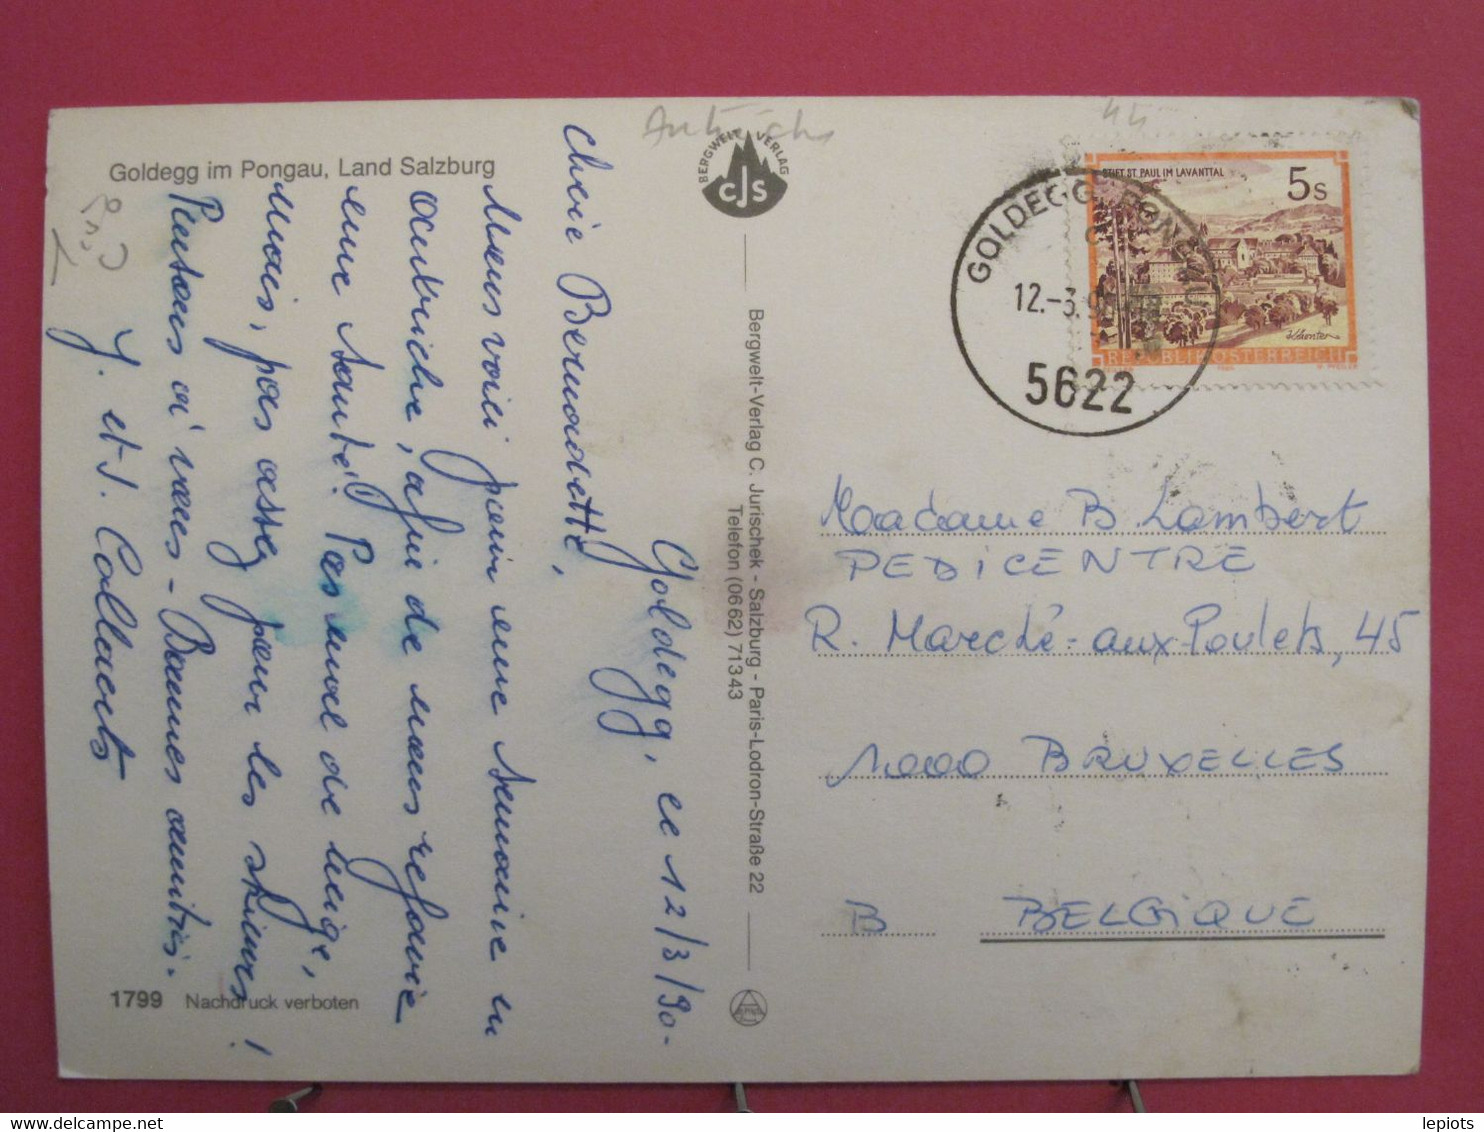 Goldegg im Pongau, Land Salzburg
Goldegg, ce 12/3/90-
Chère Bernadette,
Nous voici pour une semaine en
Autriche, afin de nous refaire
une santé! Pas mal de neige,
mais, pas assez pour les skieurs!
Pensons à vous - Bonnes amitiés.
J. et J. Collaerts
1799 Nachdruck verboten
Autriche
BERGWELT VERLAG
CJS
Bergwelt-Verlag C. Jurischek - Salzburg - Paris-Lodron-Straße 22
Telefon (0662) 71343
44
GOLDEGG PONGAU
12.-3.90
5622
STIFT ST. PAUL IM LAVANTTAL
5s
REPUBLIK ÖSTERREICH
Madame B Lambert
PEDICENTRE
R. Marché-aux-Poulets, 45
1000 BRUXELLES
B BELGIQUE
lepiots